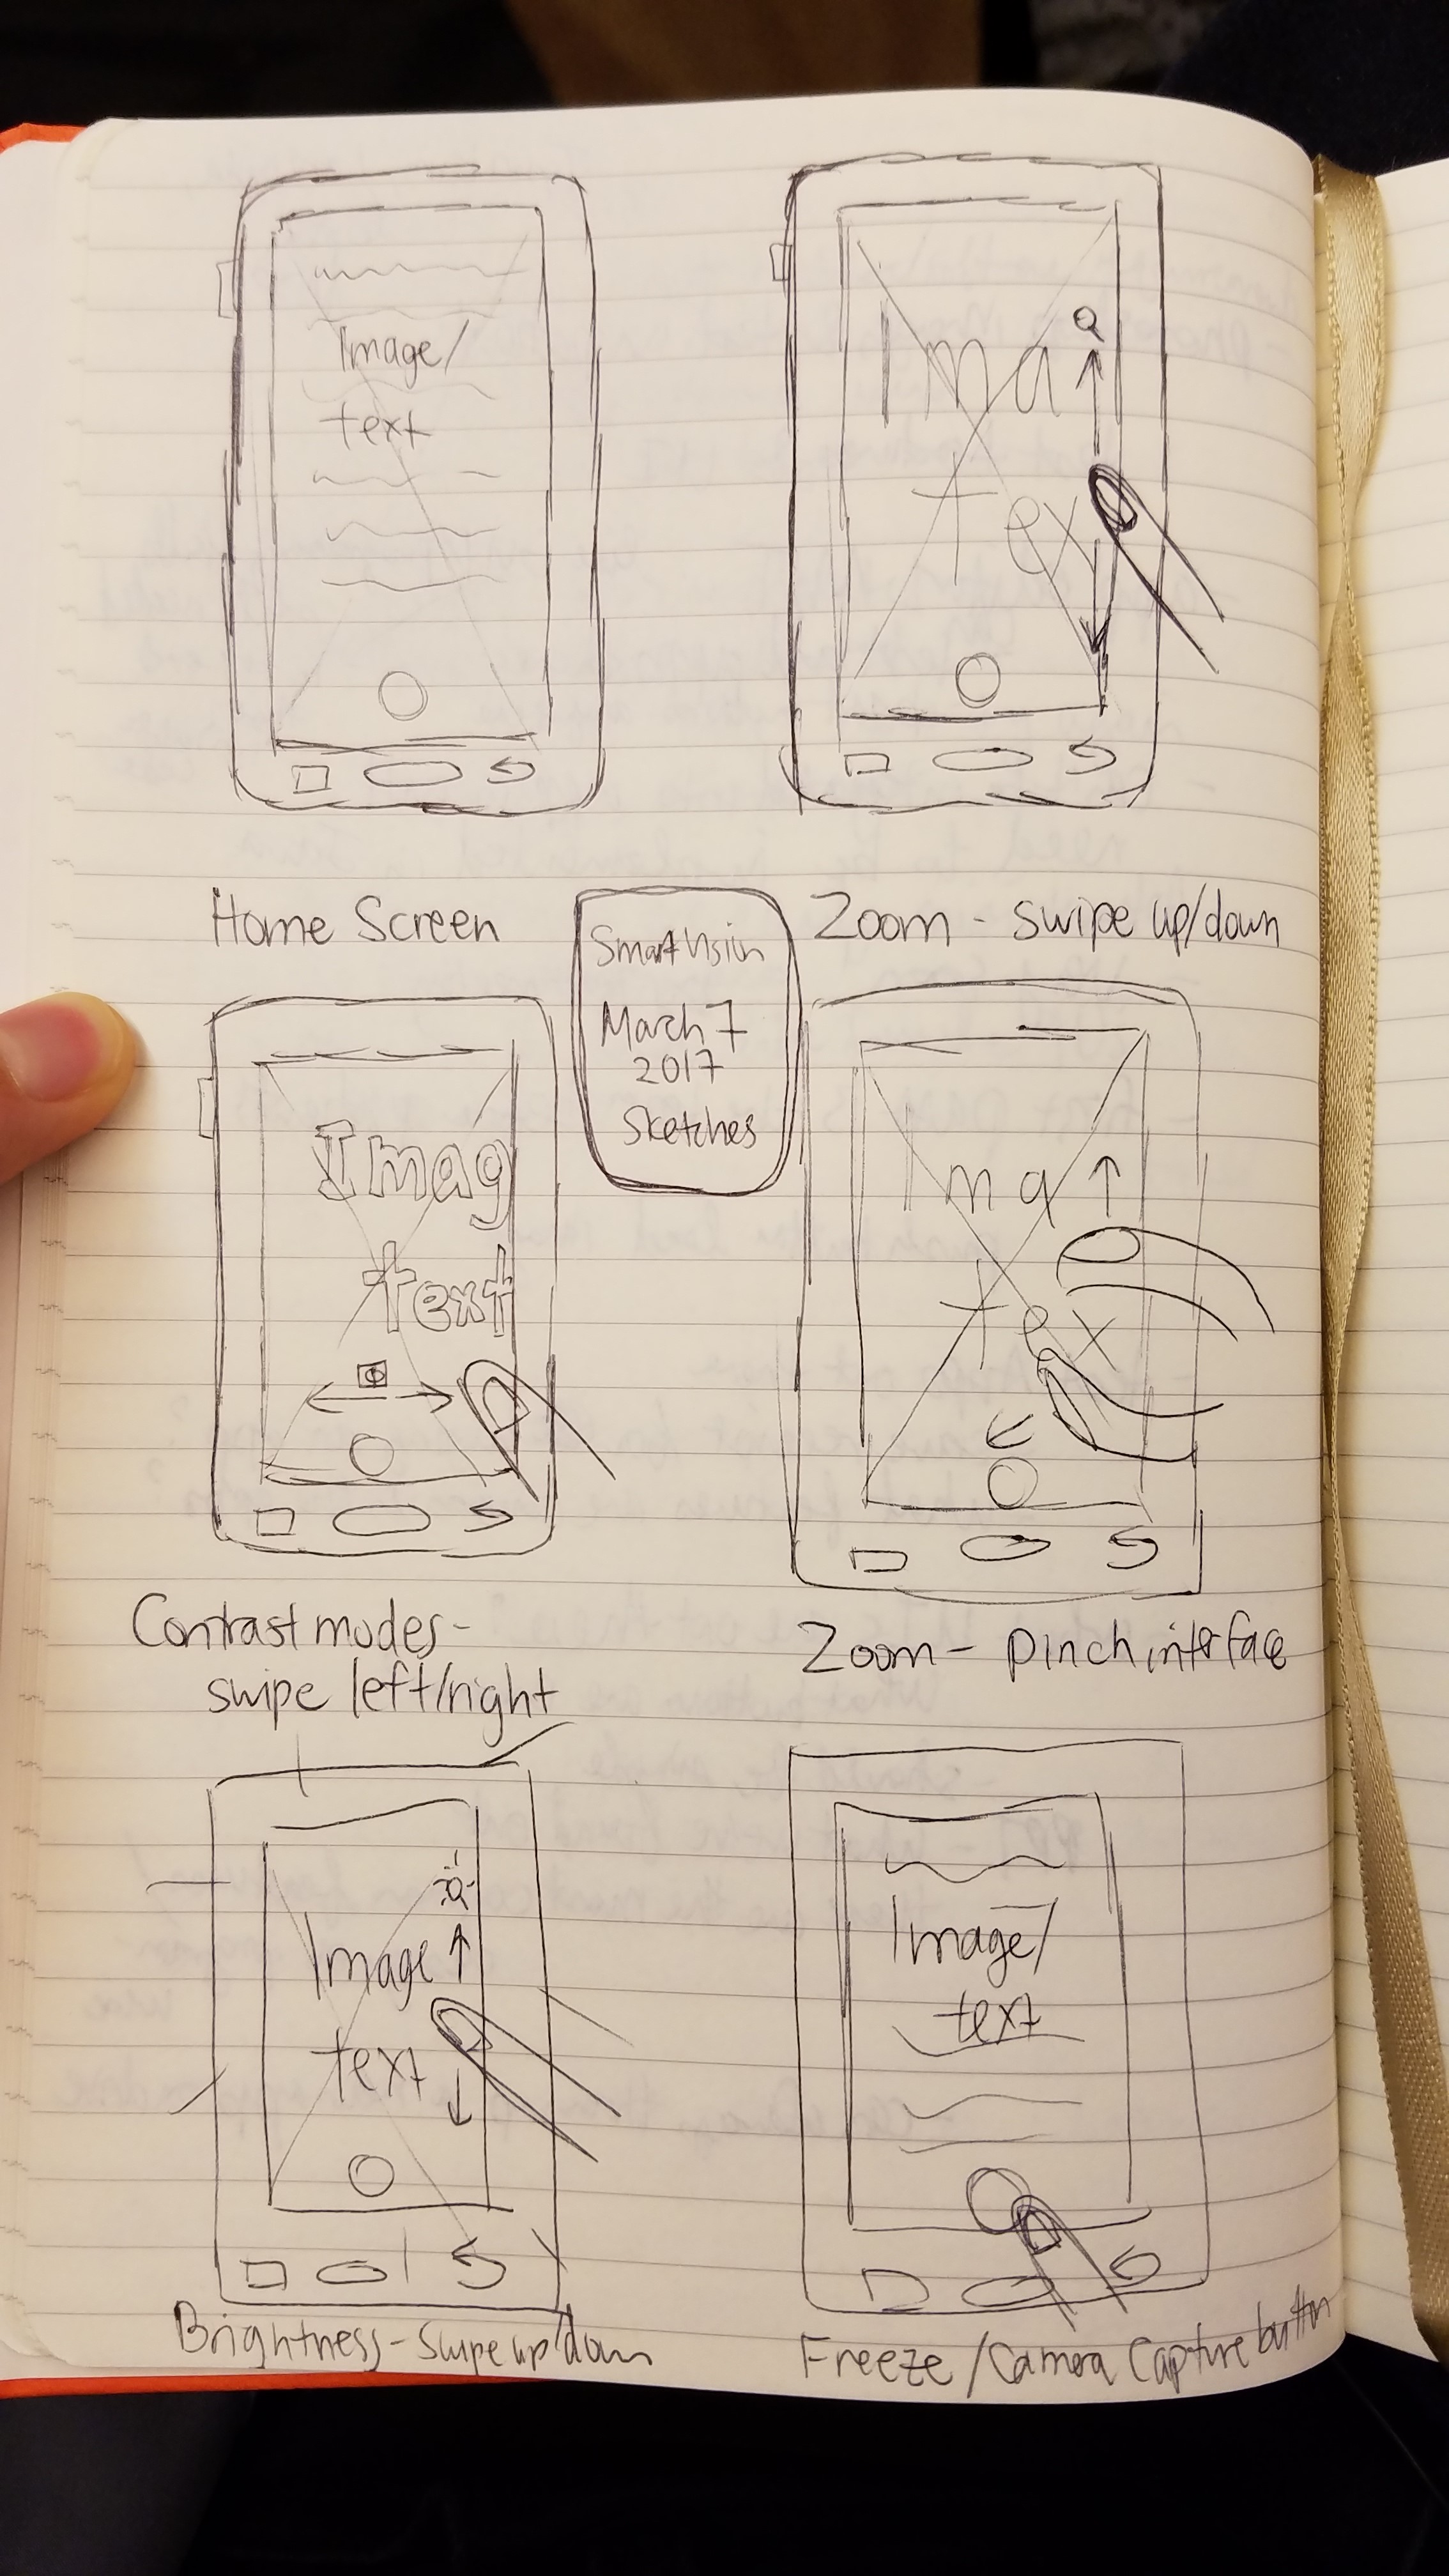 Image/
text
Ima
tex
Home Screen
Zoom - swipe up/down
Smart Vision
March 7
2017
Sketches
Imag
text
Ima
tex
Contrast modes -
swipe left/right
Zoom - pinch interface
Image
text
Image/
text
Brightness - swipe up/down
Freeze/Camera Capture button